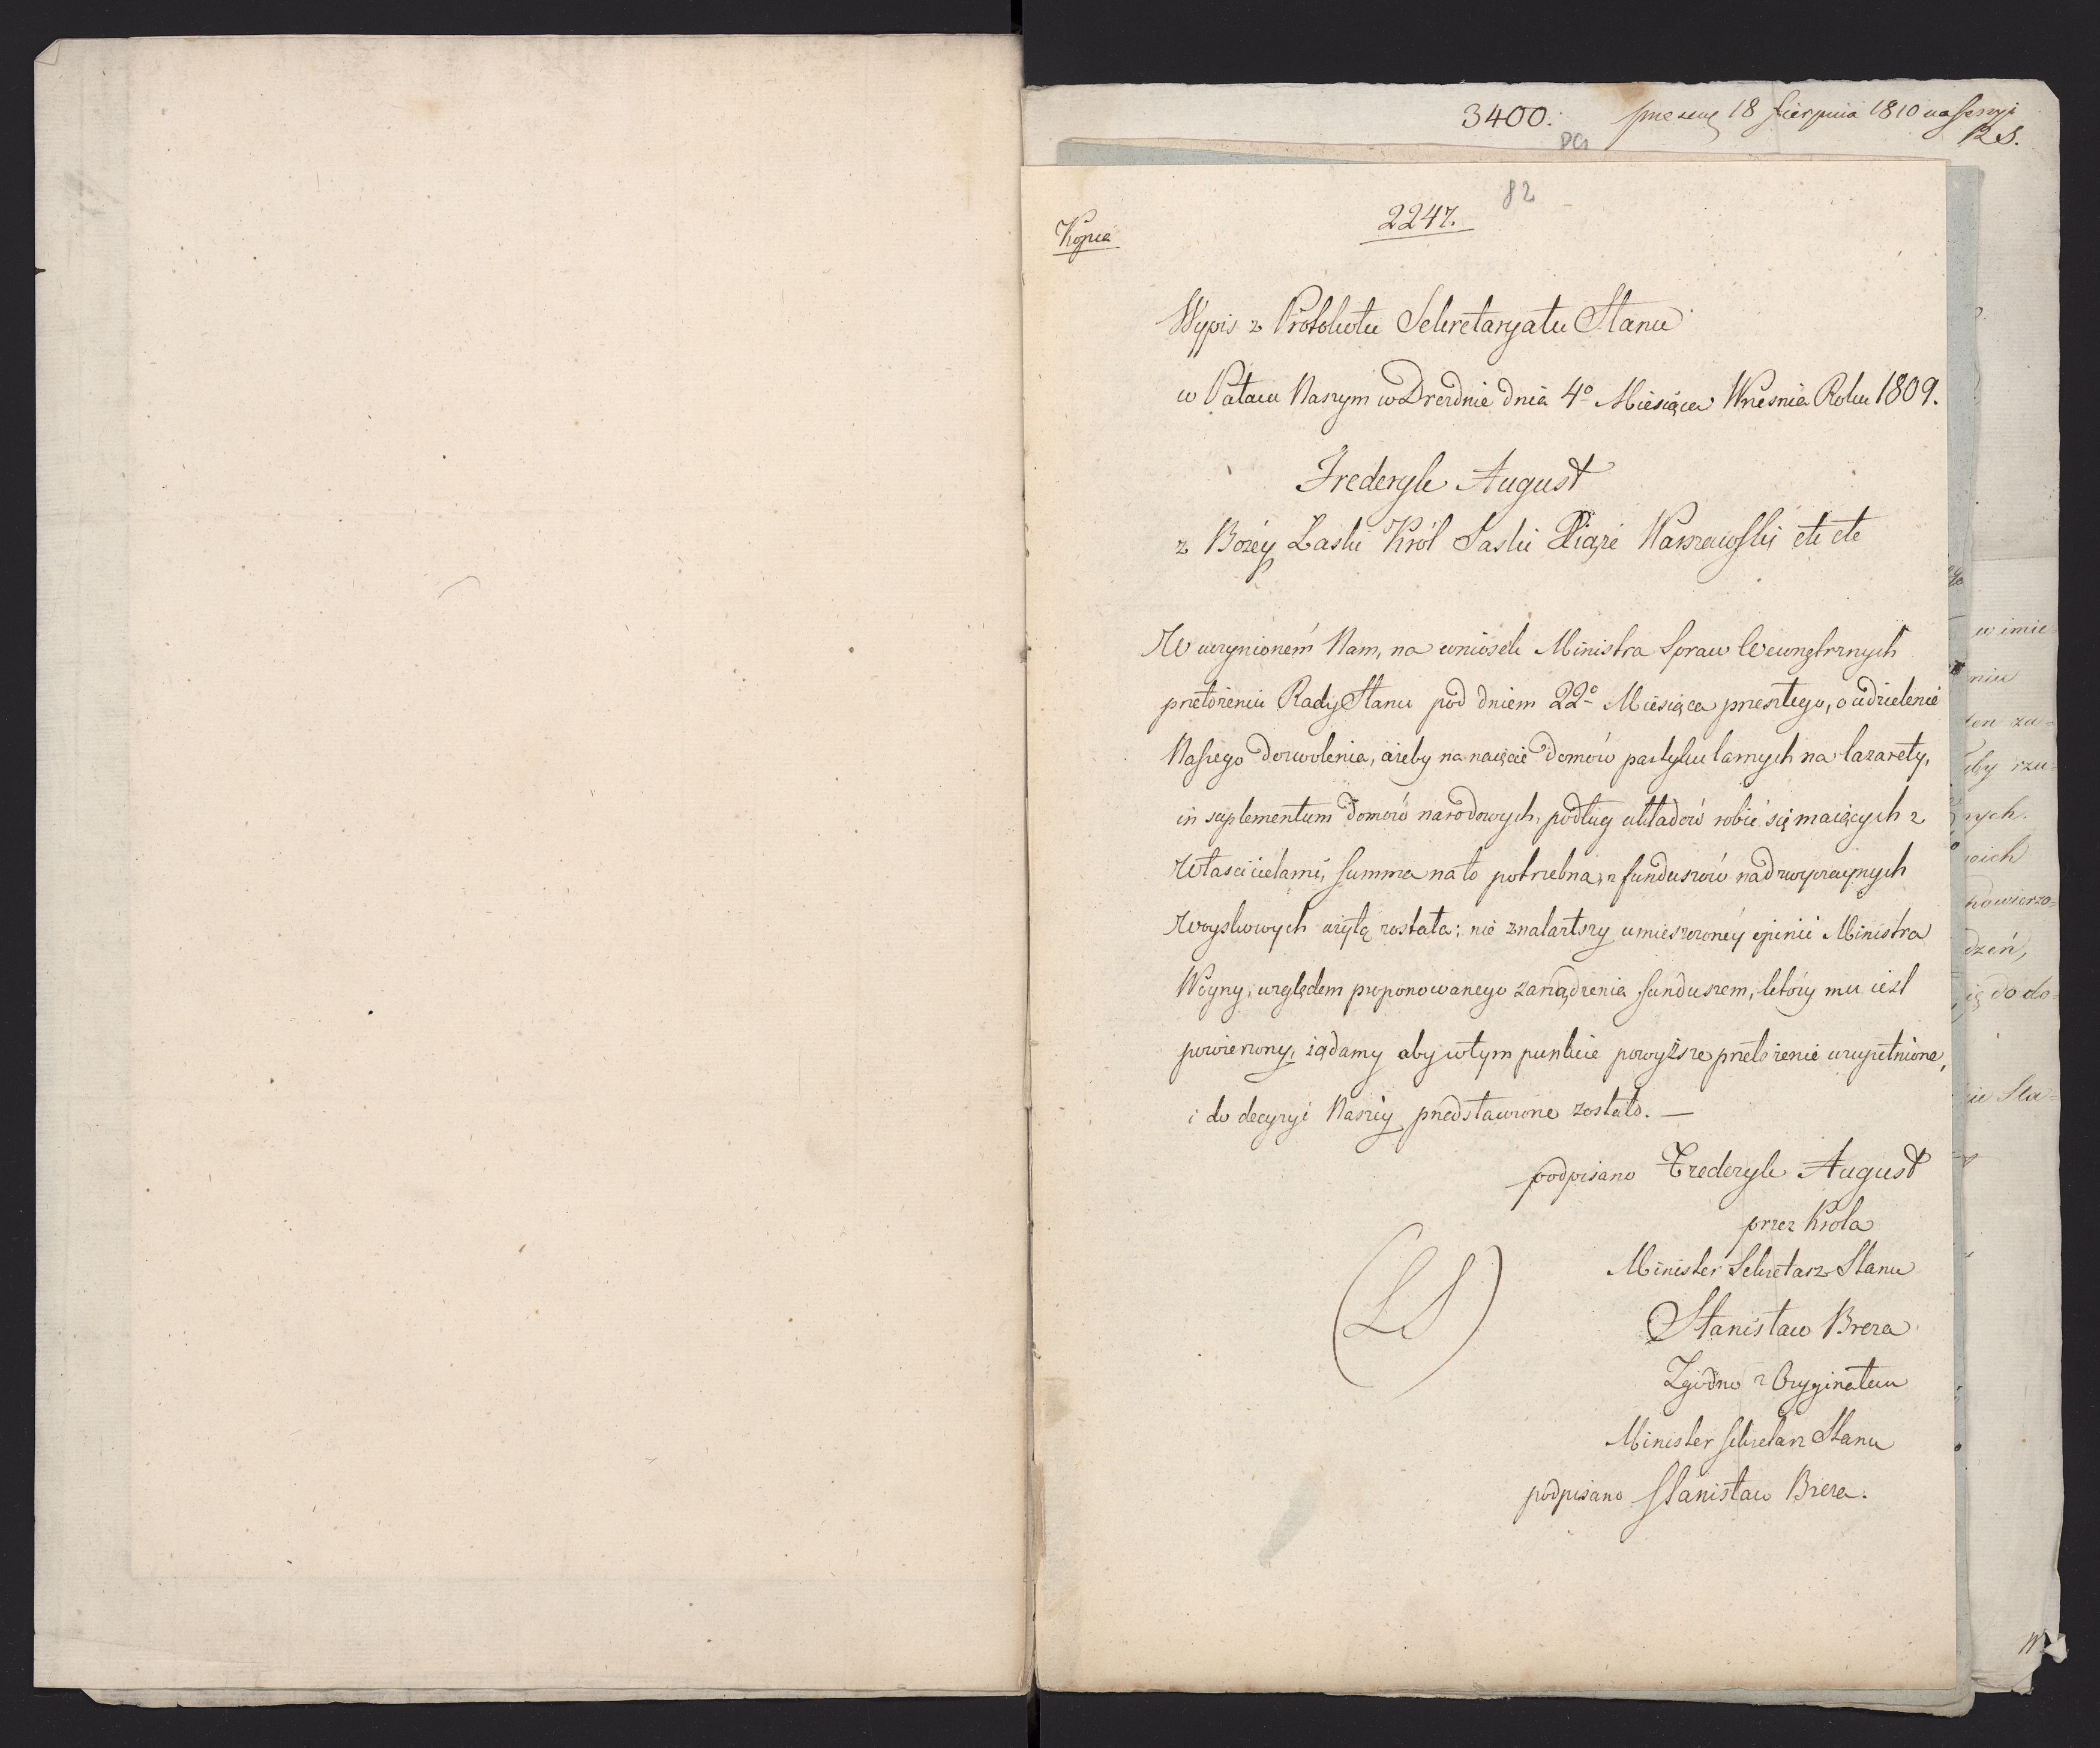 3400. 18 Sierpnia 1810 na Sessyi
82
2247.
Kopia
Wypis z Protokołu Sekretaryatu Stanu
w Pałacu Naszym w Dreźnie dnia 4º Miesiąca Września Roku 1809.
Frederyk August
z Bożéy Łaski Król Saski Xiąże Warszawski etc etc
W uczynioném Nam, na wniosek Ministra Spraw Wewnętrznych
przełożeniu Rady Stanu pod dniem 22º Miesiąca przeszłego, o udzielenie
Naszego dozwolenia, ażeby na naięcie domów partykularnych na lazarety,
in suplementum domów narodowych, podług układów robić się maiących z
Właścicielami, summa na to potrzebna, z funduszów nadzwyczaynych
Woyskowych użytą została; nie znalazłszy umieszczonéy opinii Ministra
Woyny, względem proponowanego zarządzenia funduszem, który mu iest
powierzony, żądamy aby w tym punkcie powyższe przełożenie uzupełnione,
i do decyzyi Naszéy przedstawione zostało. —
podpisano Frederyk August
przez Króla
Minister Sekretarz Stanu
(LS)
Stanisław Breza
Zgodno z Oryginałem
Minister Sekretarz Stanu
podpisano Stanisław Breza.
w imie=
niu
ten za=
nych.
dzeń,
ię do do=